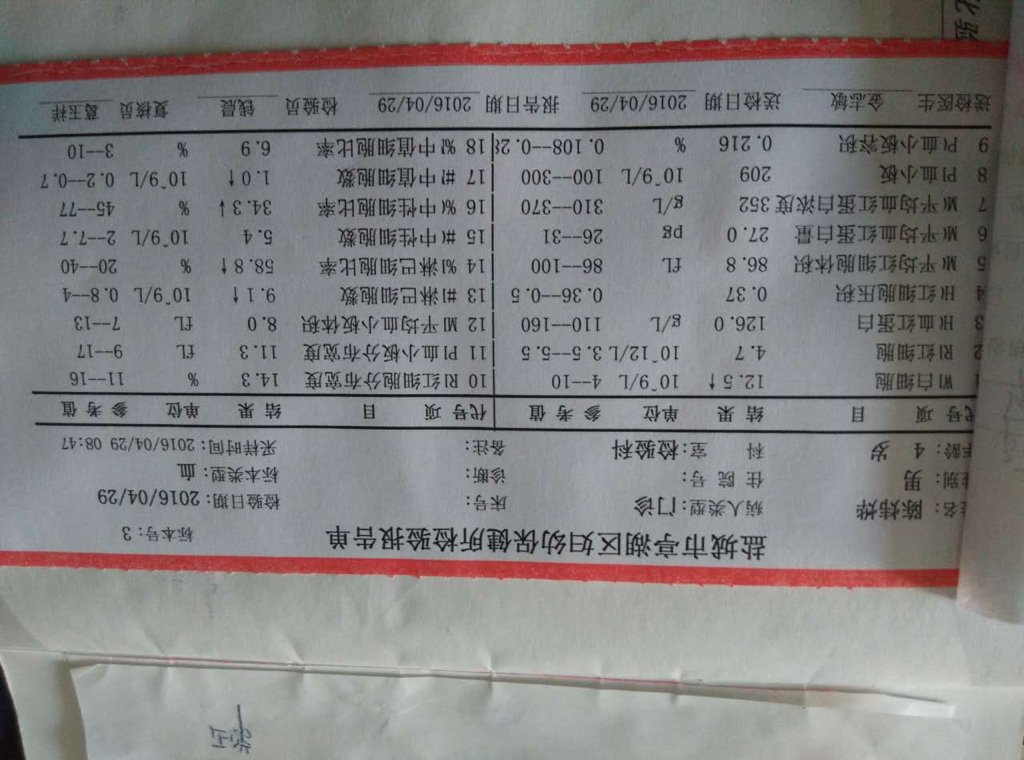 盐城市亭湖区妇幼保健所检验报告单
标本号:3
名: 陈炜烨 病人类型:门诊 床号: 检验日期:2016/04/29
性别: 男 住 院 号: 诊断: 标本类型:血
年龄: 4 岁 科 室:检验科 备注: 采样时间:2016/04/29 08:47
代号 项 目 结 果 单位 参 考 值 代号 项 目 结 果 单位 参 考 值
W 白细胞 12.5↑ 10^9/L 4--10 10 R 红细胞分布宽度 14.3 % 11--16
2 R 红细胞 4.7 10^12/L 3.5--5.5 11 P 血小板分布宽度 11.3 fL 9--17
3 H 血红蛋白 126.0 g/L 110--160 12 M 平均血小板体积 8.0 fL 7--13
4 H 红细胞压积 0.37 0.36--0.5 13 #淋巴细胞数 9.1↑ 10^9/L 0.8--4
5 M 平均红细胞体积 86.8 fL 86--100 14 %淋巴细胞比率 58.8↑ % 20--40
6 M 平均血红蛋白量 27.0 pg 26--31 15 #中性细胞数 5.4 10^9/L 2--7.7
7 M 平均血红蛋白浓度 352 g/L 310--370 16 %中性细胞比率 34.3↓ % 45--77
8 Pl 血小板 209 10^9/L 100--300 17 #中值细胞数 1.0↑ 10^9/L 0.2--0.7
9 P 血小板容积 0.216 % 0.108--0.28 18 %中值细胞比率 6.9 % 3--10
送检医生 金志敏 送检日期 2016/04/29 报告日期 2016/04/29 检验员 钱晨 复核员 葛玉祥